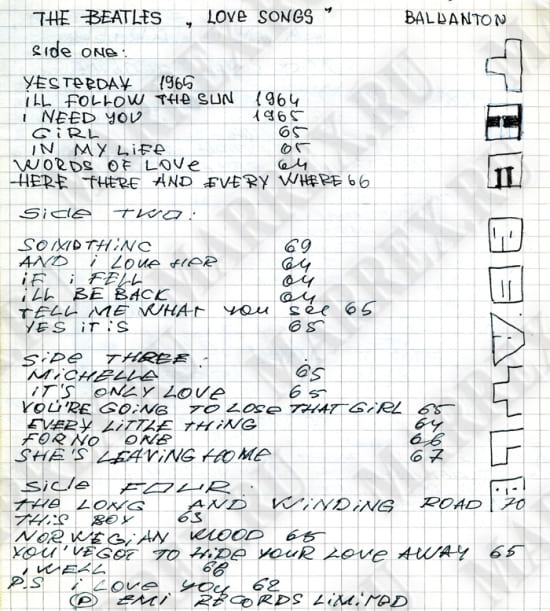 THE BEATLES „LOVE SONGS" BALKANTON
Side ONE:
YESTERDAY 1965
ILL FOLLOW THE SUN 1964
i NEED YOU 1965
GiRL 65
iN MY LiFE 65
WORDS OF LOVE 64
HERE THERE AND EVERY WHERE 66
Side TWO:
SOMDTHiNC 69
AND i LOVE HER 64
iF i FELL 64
iLL BE BACK 64
TELL ME WHAT YOU SEE 65
YES iT iS 65
SiDE THREE:
MiCHELLE 65
iT'S ONLY LOVE 65
YOU'RE GOiNG TO LOSE THAT GiRL 65
EVERY LiTTLE THiNG 64
FOR NO ONE 66
SHE'S LEAViNG HOME 67
Side FOUR:
THE LONG AND WiNDiNG ROAD 70
THiS BOY 63
NORWEGiAN WOOD 65
YOU'VE GOT TO HiDE YOUR LOVE AWAY 65
i WELL 68
P.S i LOVE YOU 62
Ⓟ EMi RECORDS LiMiTED
THE BEATLES
MARREX.RU